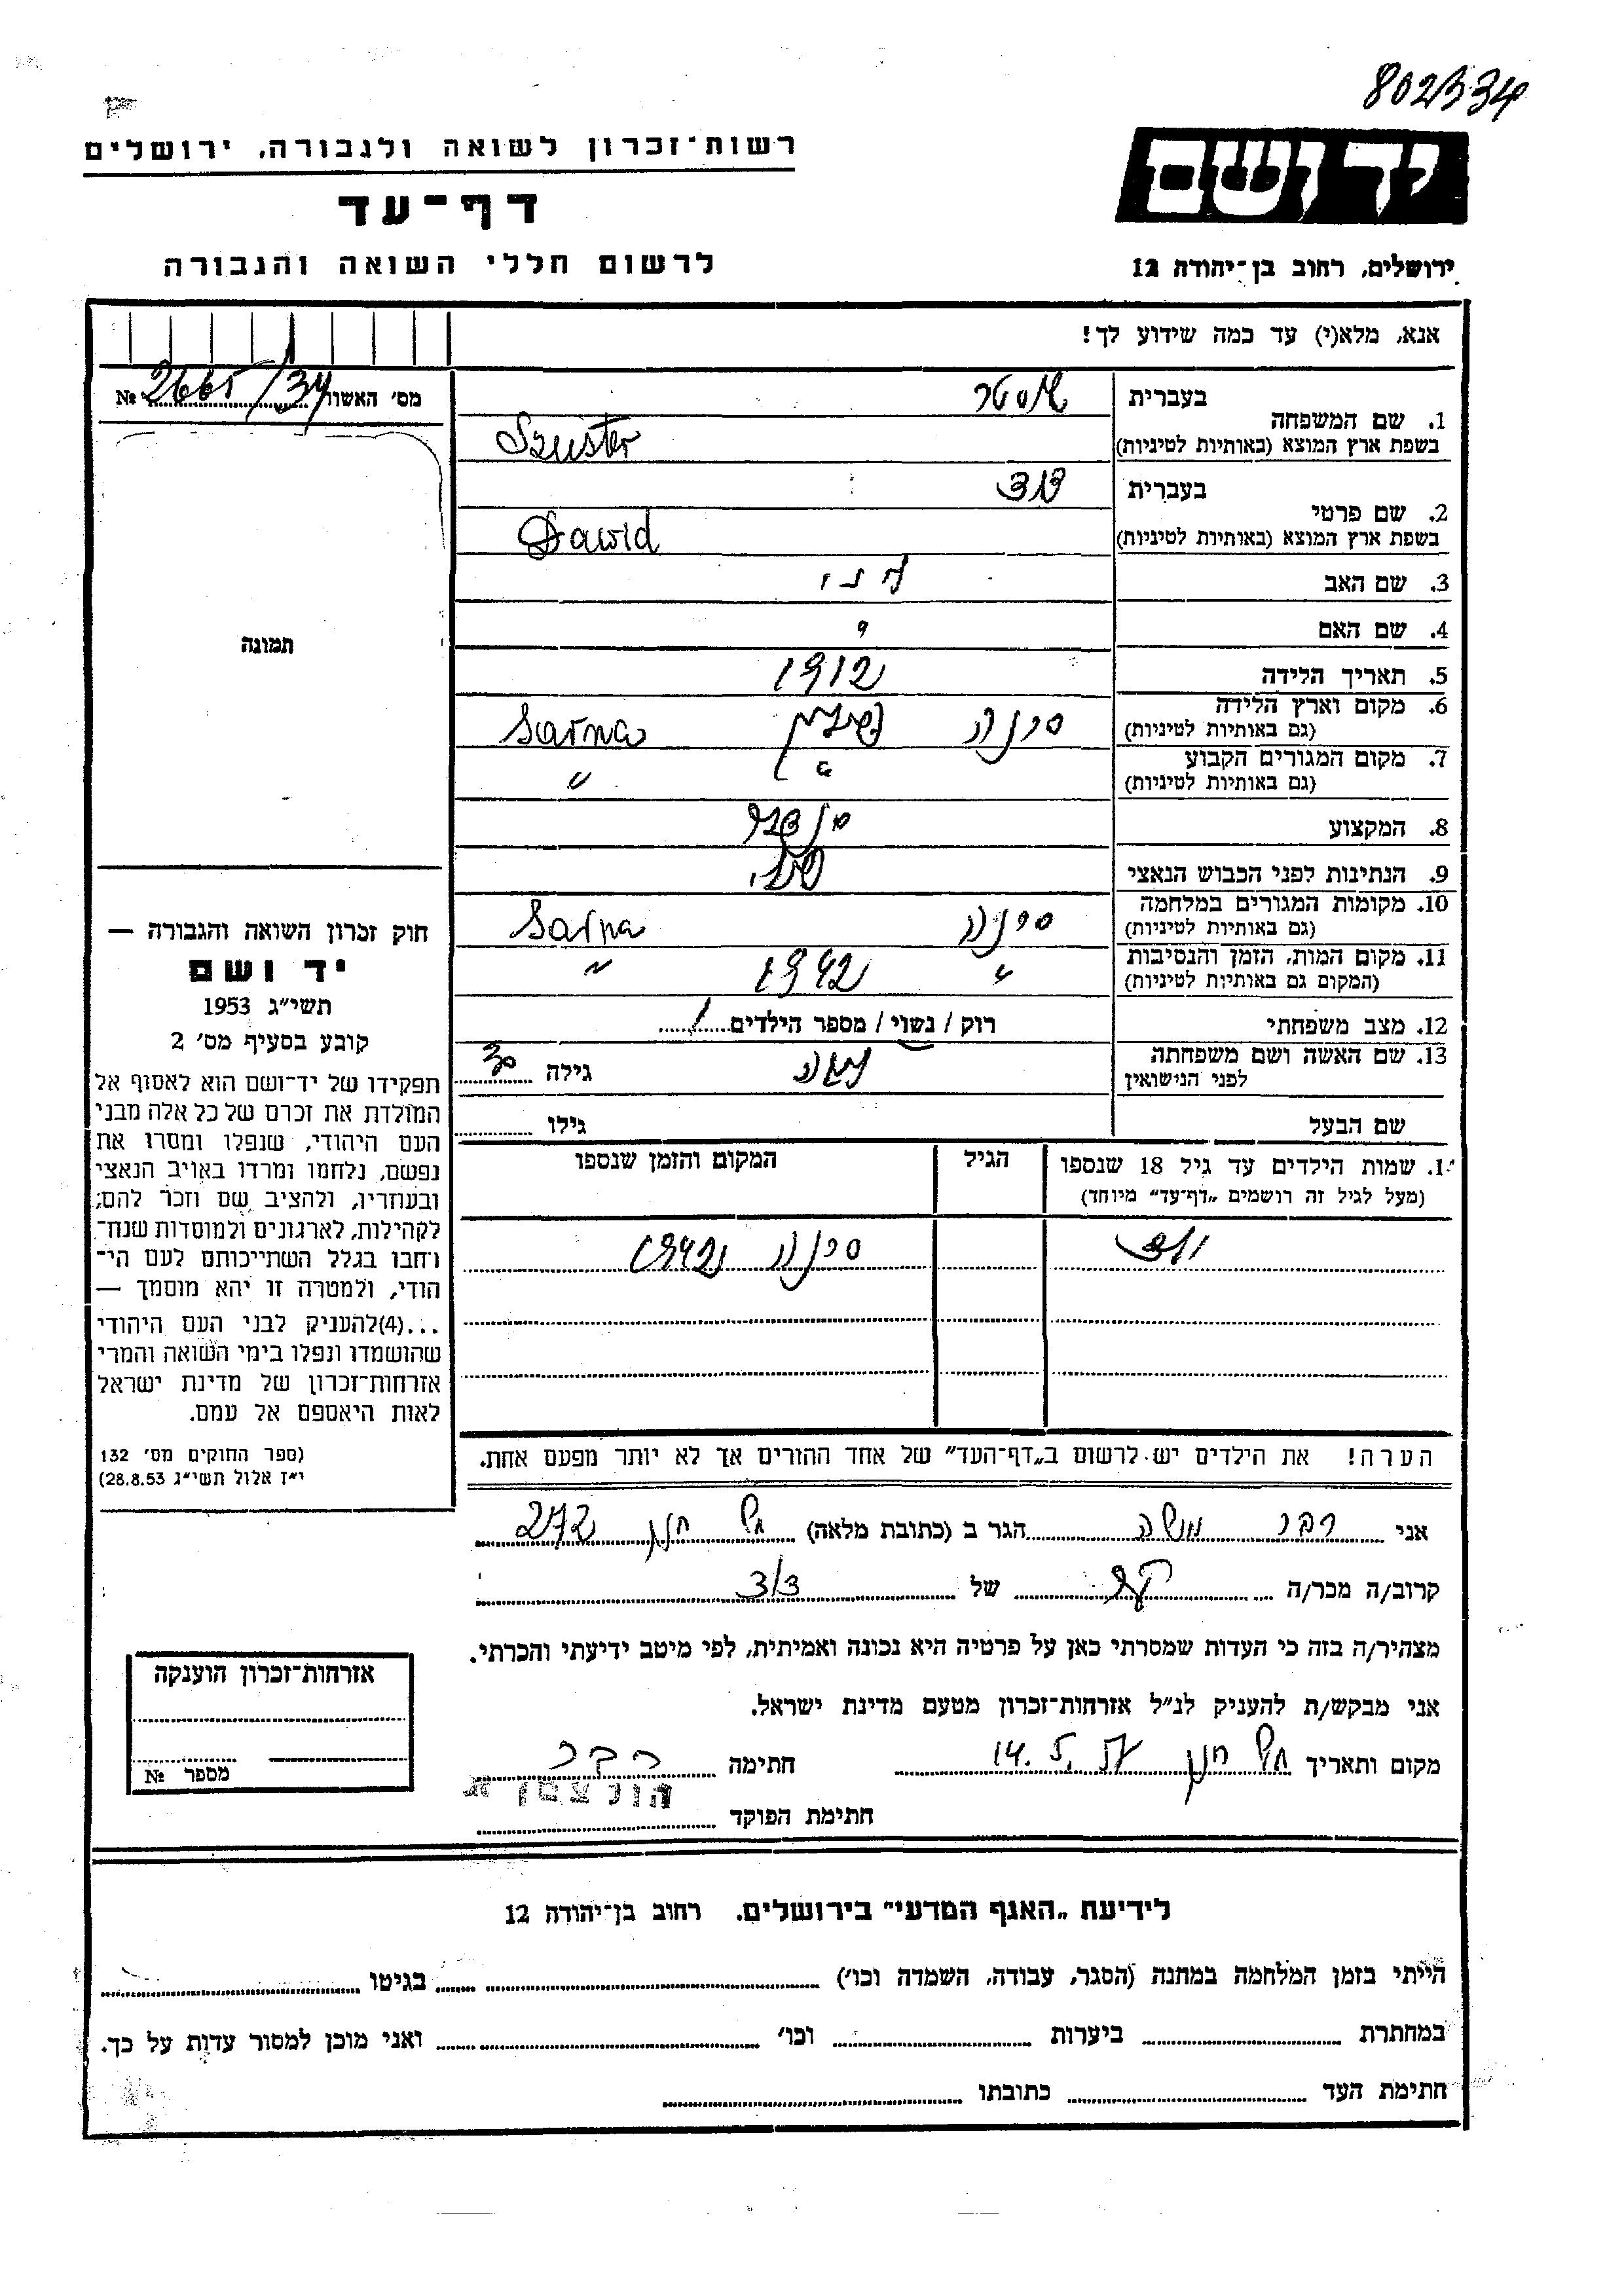 802334
רשות־זכרון לשואה ולגבורה, ירושלים
יד ושם
דף־עד
לרשום חללי השואה והגבורה
ירושלים, רחוב בן־יהודה 12
אנא, מלא(י) עד כמה שידוע לך!
מס' האשור 2665/34 №
1. שם המשפחה
בעברית שוסטר
בשפת ארץ המוצא (באותיות לטיניות) Szuster
2. שם פרטי
בעברית דוד
בשפת ארץ המוצא (באותיות לטיניות) Dawid
3. שם האב
4. שם האם ?
5. תאריך הלידה 1912
6. מקום וארץ הלידה
(גם באותיות לטיניות) סרנה Sarna
7. מקום המגורים הקבוע
(גם באותיות לטיניות) " " "
8. המקצוע סנדלר
9. הנתינות לפני הכבוש הנאצי
10. מקומות המגורים במלחמה
(גם באותיות לטיניות) סרנה Sarna
11. מקום המות, הזמן והנסיבות
(המקום גם באותיות לטיניות) " 1942 "
12. מצב משפחתי רוק / נשוי / מספר הילדים 1
13. שם האשה ושם משפחתה
לפני הנישואין גילה 30
שם הבעל גילו
תמונה
חוק זכרון השואה והגבורה —
יד ושם
תשי"ג 1953
קובע בסעיף מס' 2
תפקידו של יד־ושם הוא לאסוף אל
המולדת את זכרם של כל אלה מבני
העם היהודי, שנפלו ומסרו את
נפשם, נלחמו ומרדו באויב הנאצי
ובעוזריו, ולהציב שם וזכר להם,
לקהילות, לארגונים ולמוסדות שנח־
רחבו בגלל השתייכותם לעם הי־
הודי, ולמטרה זו יהא מוסמך —
...(4)להעניק לבני העם היהודי
שהושמדו ונפלו בימי השואה והמרי
אזרחות־זכרון של מדינת ישראל
לאות היאספם אל עמם.
(ספר החוקים מס' 132
י"ז אלול תשי"ג 28.8.53)
1. שמות הילדים עד גיל 18 שנספו
(מעל לגיל זה רושמים „דף־עד" מיוחד)
הגיל
המקום והזמן שנספו
סרנה 1942
הערה! את הילדים יש לרשום ב„דף־העד" של אחד ההורים אך לא יותר מפעם אחת.
אני רבר משה הגר ב (כתובת מלאה) 272
קרוב/ה מכר/ה של דוד
מצהיר/ה בזה כי העדות שמסרתי כאן על פרטיה היא נכונה ואמיתית, לפי מיטב ידיעתי והכרתי.
אני מבקש/ת להעניק לנ"ל אזרחות־זכרון מטעם מדינת ישראל.
מקום ותאריך 14.5. חתימה רבר
חתימת הפוקד
אזרחות־זכרון הוענקה
מספר №
לידיעת „האגף המדעי" בירושלים. רחוב בן־יהודה 12
הייתי בזמן המלחמה במחנה (הסגר, עבודה, השמדה וכו') בגיטו
במחתרת ביערות וכו' ואני מוכן למסור עדות על כך.
חתימת העד כתובתו